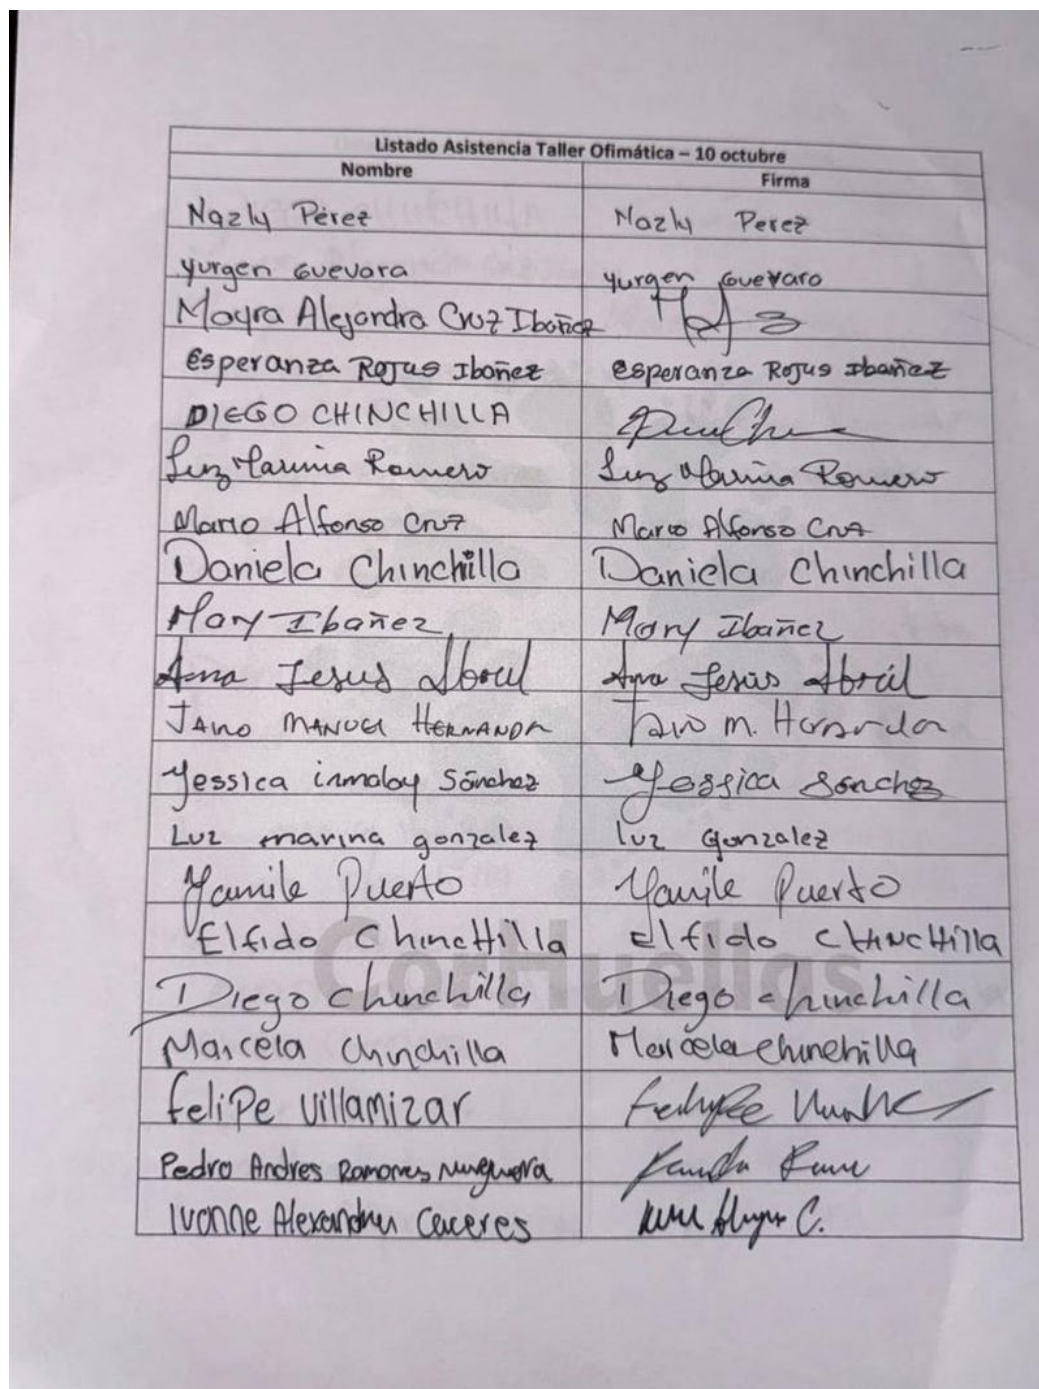 Listado Asistencia Taller Ofimática – 10 octubre
Nombre Firma
Nazly Pérez Nazly Perez
Yurgen Guevara Yurgen Guevara
Mayra Alejandra Cruz Ibañez
Esperanza Rojas Ibañez Esperanza Rojas Ibañez
DIEGO CHINCHILLA
Luz Marina Romero Luz Marina Romero
Mario Alfonso Cruz Mario Alfonso Cruz
Daniela Chinchilla Daniela Chinchilla
Mary Ibañez Mary Ibañez
Ana Jesus Abril Ana Jesús Abril
MANUEL M.
Yessica Sánchez Yessica Sánchez
Luz marina gonzalez luz gonzalez
Yamile Puerto Yamile Puerto
Elfido ChincHilla Elfido CHINCHilla
Diego Chinchilla Diego chinchilla
Marcela Chinchilla Marcela chinchilla
feliPe villamizar
Pedro Andres
Ivonne Alexandra Caceres C.
CorHuellas